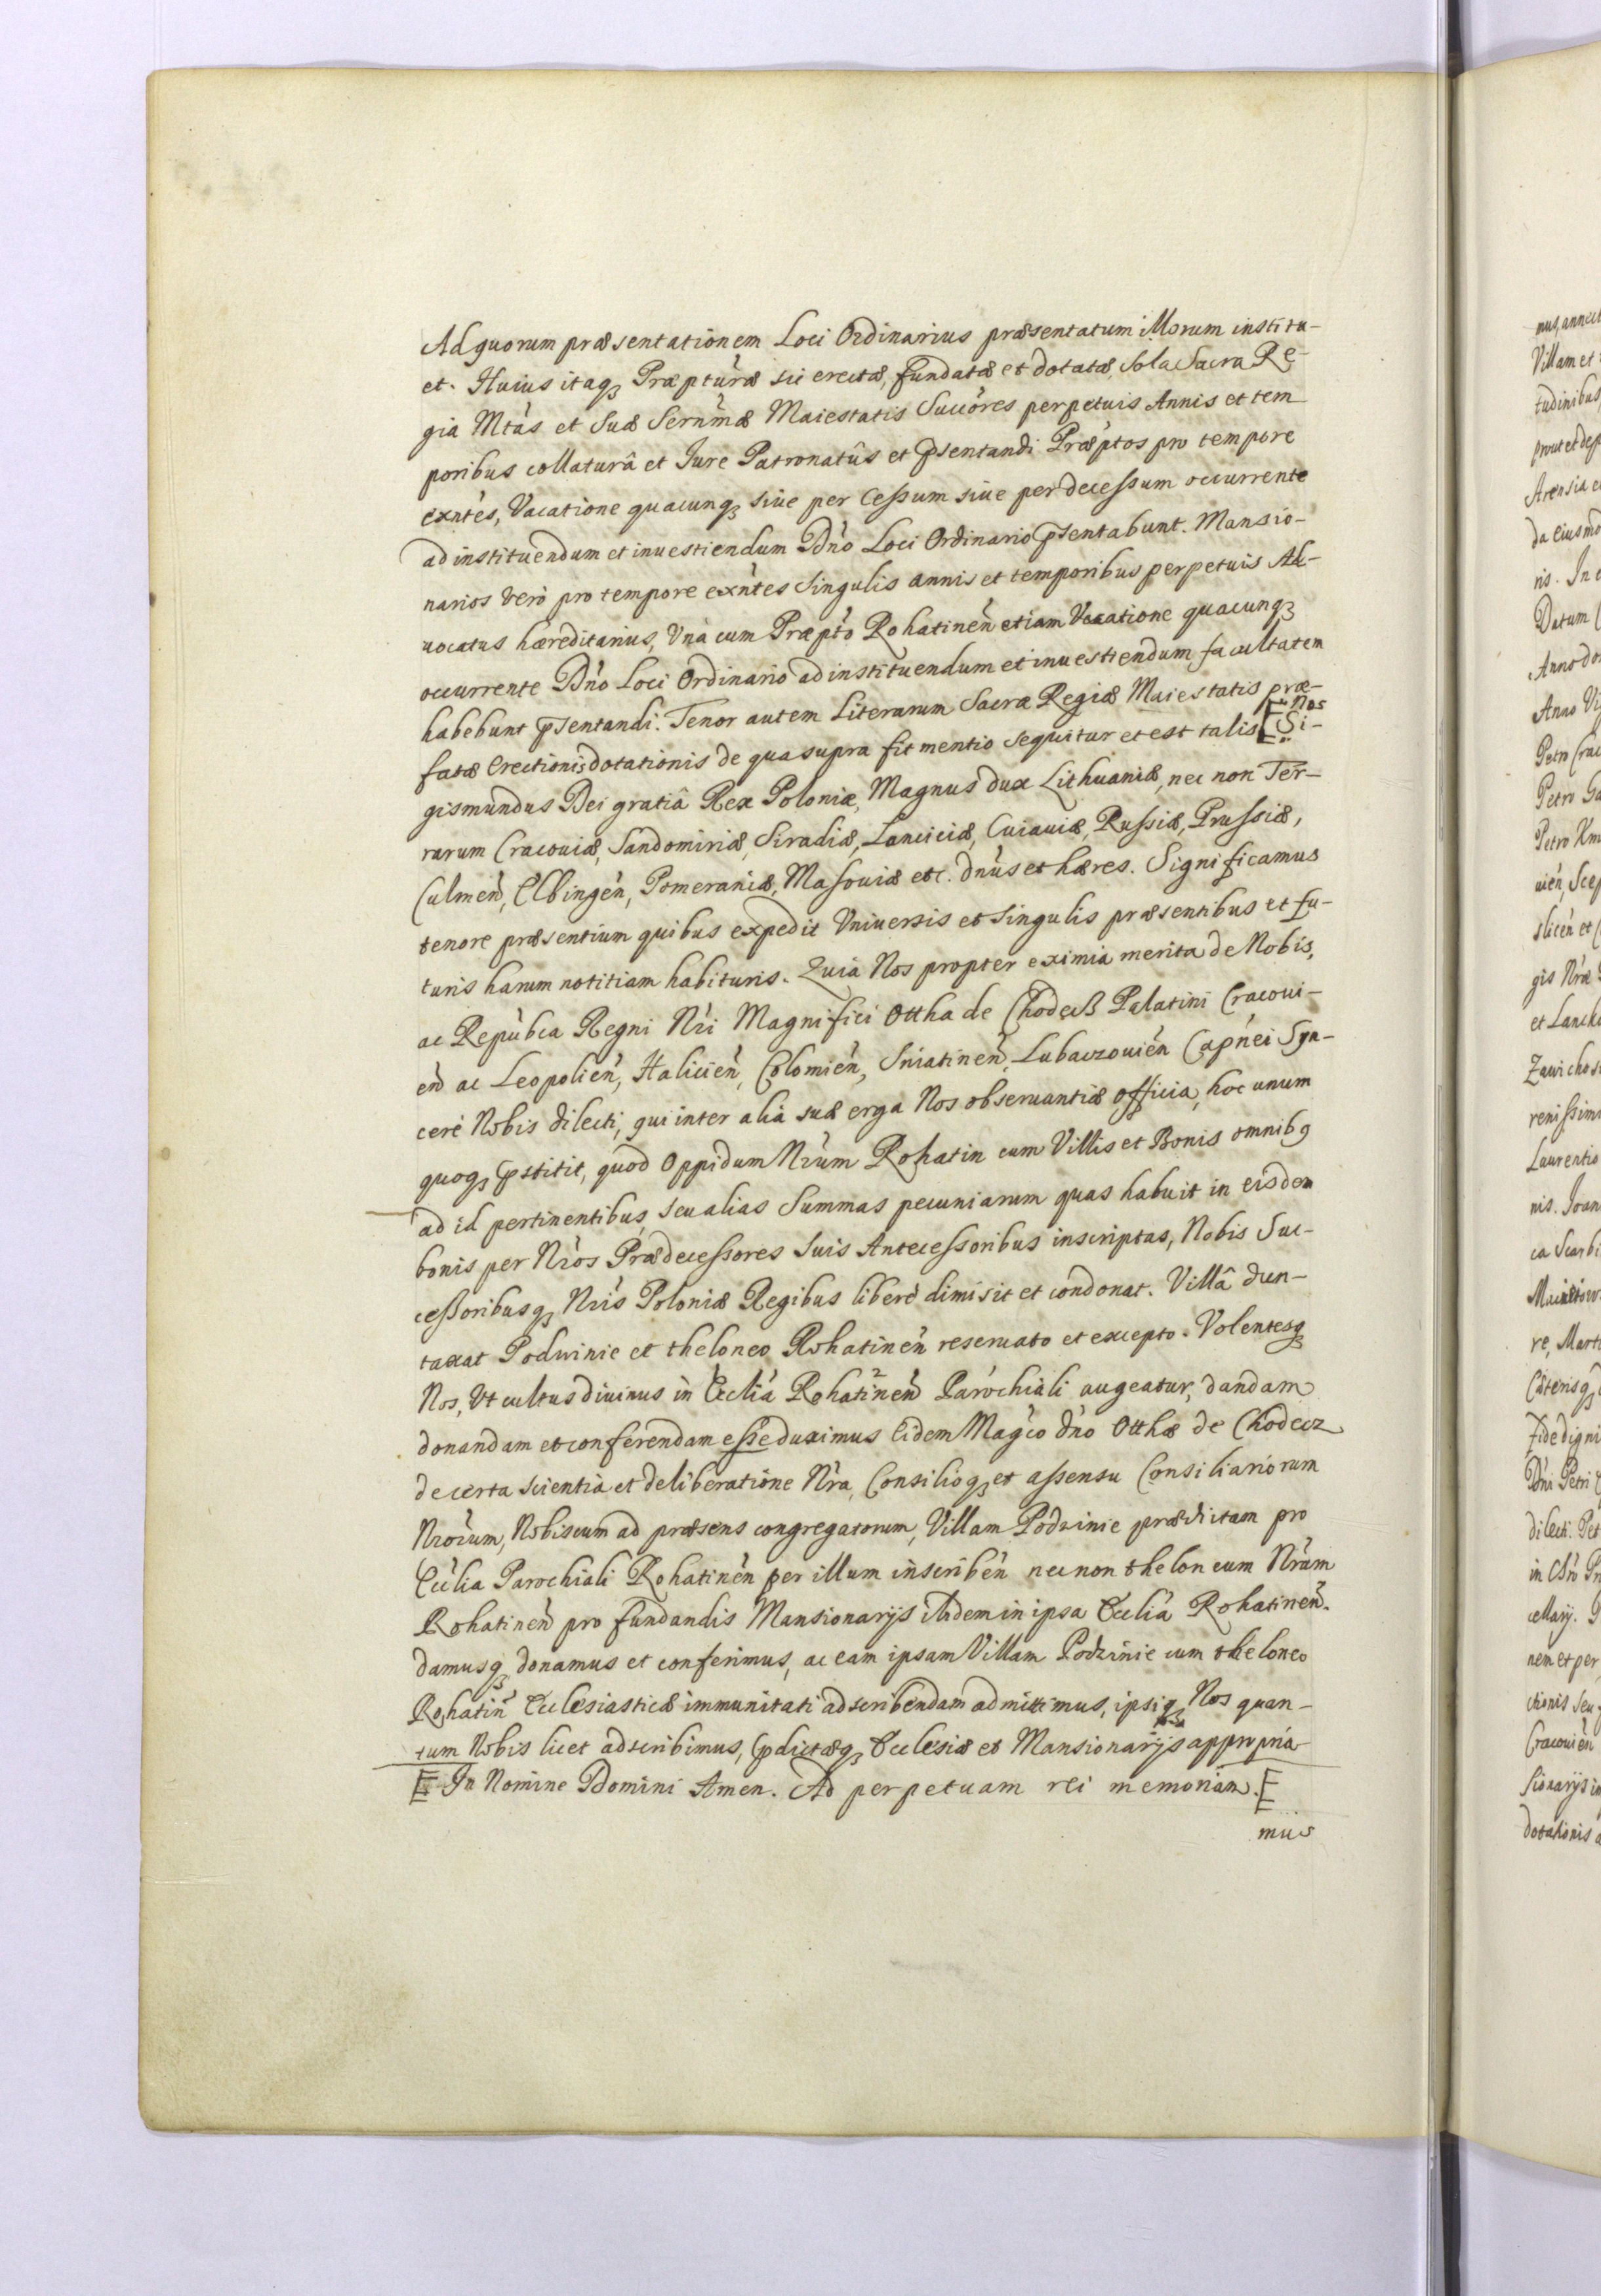 Ad quorum præsentationem Loci Ordinarius præsentatum illorum institu-
et. Huius itaq3 Præpturæ sic erectæ, fundatæ et dotatæ, Sola Sacra Re-
gia Mtas et Suæ Sernmæ Maiestatis Succores perpetuis Annis et tem
poribus collaturâ et Jure Patronatûs et psentandi Præptos pro tempore
exntes, Vacatione quacunq3 siue per Cessum siue per decessum occurrente
ad instituendum et inuestiendum Dno Loci Ordinario psentabunt. Mansio-
narios verò pro tempore exntes Singulis annis et temporibus perpetuis Ad-
uocatus hæreditarius, Vnà cum Præpto Rohatinen etiam Vacatione quacunq3
occurrente Dno Loci Ordinario ad instituendum et inuestiendum, facultatem
habebunt psentandi. Tenor autem Literarum Sacræ Regiæ Maiestatis præ-
fatæ Erectionis dotationis de qua supra fit mentio sequitur et est talis Nos Si-
gismundus Dei gratiâ Rex Poloniæ, Magnus dux Lithuaniæ, nec non Ter-
rarum Cracouiæ, Sandomiriæ, Siradiæ, Lanciciæ, Cuiauiæ, Russiæ, Prussiæ,
Culmen, Elbingen, Pomeraniæ, Masouiæ etc. dnus et hæres. Significamus
tenore præsentium quibus expedit Vniuersis et singulis præsentibus et fu-
turis harum notitiam habituris. Quia Nos propter eximia merita de Nobis,
ac Repubca Regni Nri Magnifici Ottha de Chodecß Palatini Cracoui-
en ac Leopolien, Halicien, Colomien, Sniatinen, Lubaczouien Capnei Syn-
cerè Nobis dilecti, qui inter alia suæ erga Nos obseruantiæ officia, hoc unum
quoq3 pstitit, quod Oppidum Nrum Rohatin cum Villis et Bonis omnib9
ad id pertinentibus, seu alias Summas pecuniarum quas habuit in eisdem
bonis per Nros Prædecessores Suis Antecessoribus inscriptas, Nobis Suc-
cessoribusq3 Nris Poloniæ Regibus liberè dimisit et condonat. Villâ dun-
taxat Podwinie et theloneo Rohatinen reseruato et excepto. Volentesq3
Nos, Vt cultus diuinus in Ecclia Rohatinen Parochiali augeatur, dandam
donandam et conferendam esse duximus Eidem Magco dno Otthæ de Chodecz
de certa scientia et deliberatione Nra, Consilioq3 et assensu Consiliariorum
Nrorum, Nobiscum ad præsens congregatorum, Villam Podzinie prædictam pro
Ecclia Parochiali Rohatinen per illum inscriben nec non theloneum Nrum
Rohatinen pro fundandis Mansionarijs ibidem in ipsa Ecclia Rohatinen.
damusq3 donamus et conferimus, ac eam ipsam Villam Podzinie cum theloneo
Rohatin Ecclesiasticæ immunitati adscribendam admittimus, ipsiq3 Nos quan-
tum Nobis licet adscribimus, pdictæq3 Ecclesiæ et Mansionarijs appropria-
In Nomine Domini Amen. Ad perpetuam rei memoriam.
mus